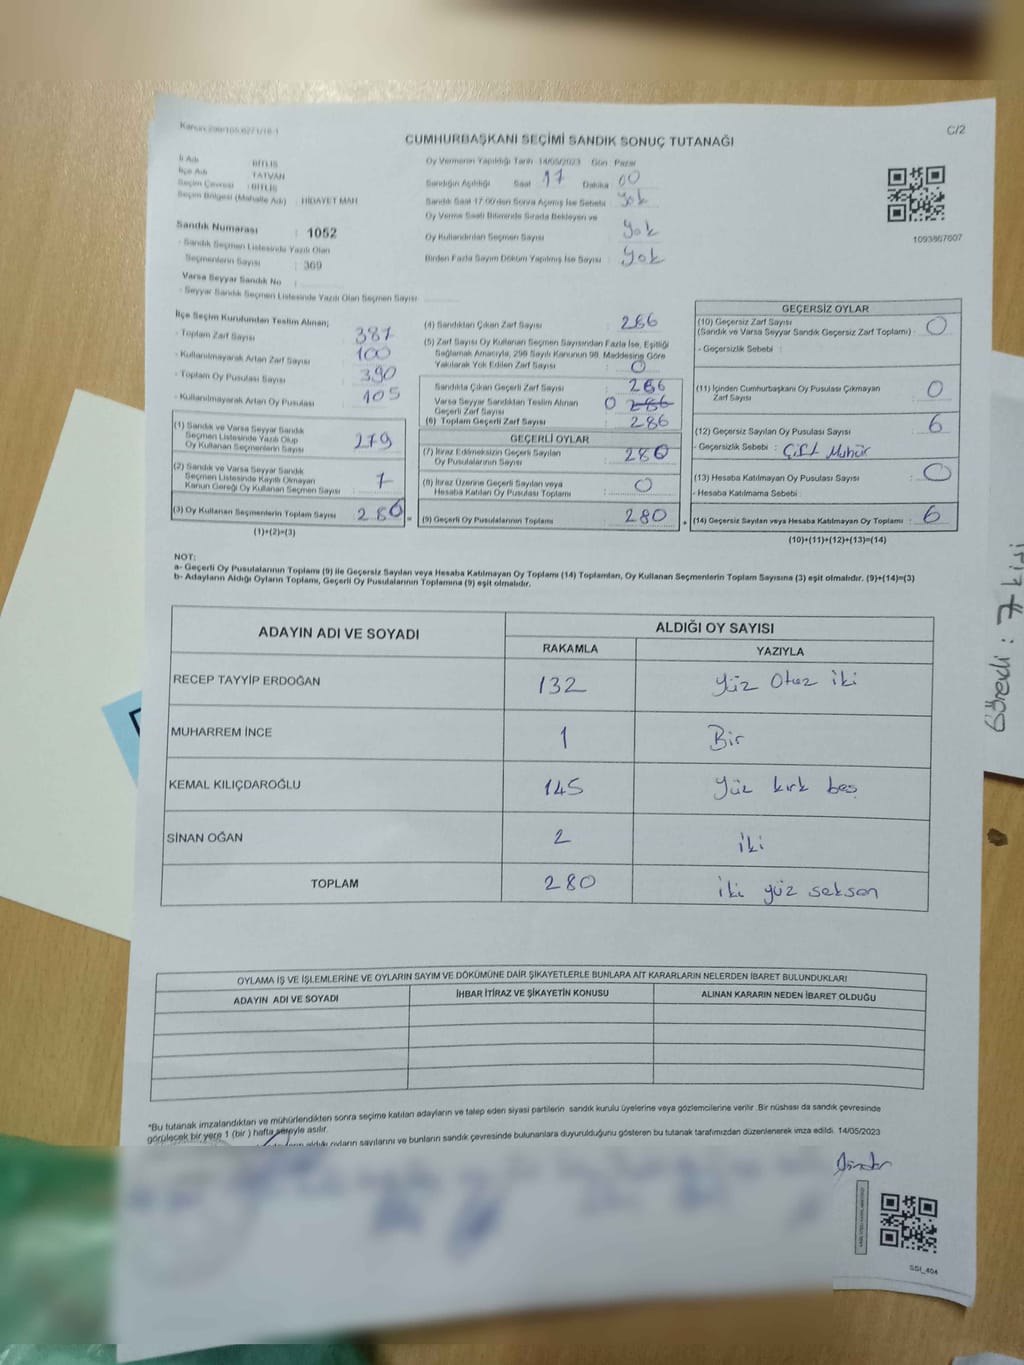 Kanun:298/105,6271/16-1
C/2
CUMHURBAŞKANI SEÇİMİ SANDIK SONUÇ TUTANAĞI
İl Adı : BİTLİS
İlçe Adı : TATVAN
Seçim Çevresi : BİTLİS
Seçim Bölgesi (Mahalle Adı) : HİDAYET MAH
Sandık Numarası : 1052
- Sandık Seçmen Listesinde Yazılı Olan
Seçmenlerin Sayısı : 369
Varsa Seyyar Sandık No :
- Seyyar Sandık Seçmen Listesinde Yazılı Olan Seçmen Sayısı
Oy Vermenin Yapıldığı Tarih 14/05/2023 Gün Pazar
Sandığın Açıldığı Saat 17 Dakika 00
Sandık Saat 17:00'den Sonra Açılmış İse Sebebi : yok
Oy Verme Saati Bitiminde Sırada Bekleyen ve
Oy Kullandırılan Seçmen Sayısı yok
Birden Fazla Sayım Döküm Yapılmış İse Sayısı : yok
1093867607
İlçe Seçim Kurulundan Teslim Alınan;
- Toplam Zarf Sayısı : 387
- Kullanılmayarak Artan Zarf Sayısı : 100
- Toplam Oy Pusulası Sayısı : 390
- Kullanılmayarak Artan Oy Pusulası : 105
(1) Sandık ve Varsa Seyyar Sandık
Seçmen Listesinde Yazılı Olup
Oy Kullanan Seçmenlerin Sayısı : 279
(2) Sandık ve Varsa Seyyar Sandık
Seçmen Listesinde Kayıtlı Olmayan
Kanun Gereği Oy Kullanan Seçmen Sayısı : 7
(3) Oy Kullanan Seçmenlerin Toplam Sayısı : 286 =
(1)+(2)=(3)
(4) Sandıktan Çıkan Zarf Sayısı : 286
(5) Zarf Sayısı Oy Kullanan Seçmen Sayısından Fazla İse, Eşitliği
Sağlamak Amacıyla, 298 Sayılı Kanunun 98. Maddesine Göre
Yakılarak Yok Edilen Zarf Sayısı : 0
Sandıkta Çıkan Geçerli Zarf Sayısı : 286
Varsa Seyyar Sandıktan Teslim Alınan
Geçerli Zarf Sayısı 0 286
(6) Toplam Geçerli Zarf Sayısı : 286
GEÇERLİ OYLAR
(7) İtiraz Edilmeksizin Geçerli Sayılan
Oy Pusulalarının Sayısı : 280
(8) İtiraz Üzerine Geçerli Sayılan veya
Hesaba Katılan Oy Pusulası Toplamı : 0
(9) Geçerli Oy Pusulalarının Toplamı : 280 +
GEÇERSİZ OYLAR
(10) Geçersiz Zarf Sayısı
(Sandık ve Varsa Seyyar Sandık Geçersiz Zarf Toplamı) : 0
- Geçersizlik Sebebi :
(11) İçinden Cumhurbaşkanı Oy Pusulası Çıkmayan
Zarf Sayısı : 0
(12) Geçersiz Sayılan Oy Pusulası Sayısı : 6
- Geçersizlik Sebebi : Çift Mühür
(13) Hesaba Katılmayan Oy Pusulası Sayısı : 0
- Hesaba Katılmama Sebebi :
(14) Geçersiz Sayılan veya Hesaba Katılmayan Oy Toplamı : 6
(10)+(11)+(12)+(13)=(14)
NOT:
a- Geçerli Oy Pusulalarının Toplamı (9) ile Geçersiz Sayılan veya Hesaba Katılmayan Oy Toplamı (14) Toplamları, Oy Kullanan Seçmenlerin Toplam Sayısına (3) eşit olmalıdır. (9)+(14)=(3)
b- Adayların Aldığı Oyların Toplamı, Geçerli Oy Pusulalarının Toplamına (9) eşit olmalıdır.
Görevli : 7 kişi
ADAYIN ADI VE SOYADI
ALDIĞI OY SAYISI
RAKAMLA YAZIYLA
RECEP TAYYİP ERDOĞAN 132 Yüz Otuz iki
MUHARREM İNCE 1 Bir
KEMAL KILIÇDAROĞLU 145 Yüz kırk beş
SİNAN OĞAN 2 iki
TOPLAM 280 iki yüz seksen
OYLAMA İŞ VE İŞLEMLERİNE VE OYLARIN SAYIM VE DÖKÜMÜNE DAİR ŞİKAYETLERLE BUNLARA AİT KARARLARIN NELERDEN İBARET BULUNDUKLARI
ADAYIN ADI VE SOYADI İHBAR İTİRAZ VE ŞİKAYETİN KONUSU ALINAN KARARIN NEDEN İBARET OLDUĞU
*Bu tutanak imzalandıktan ve mühürlendikten sonra seçime katılan adayların ve talep eden siyasi partilerin sandık kurulu üyelerine veya gözlemcilerine verilir .Bir nüshası da sandık çevresinde
görülecek bir yere 1 (bir ) hafta süreyle asılır.
aldığı oyların sayılarını ve bunların sandık çevresinde bulunanlara duyurulduğunu gösteren bu tutanak tarafımızdan düzenlenerek imza edildi. 14/05/2023
SSI_404